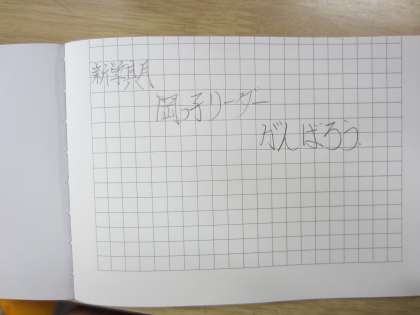 新学期
岡っ子リーダー
がんばろう